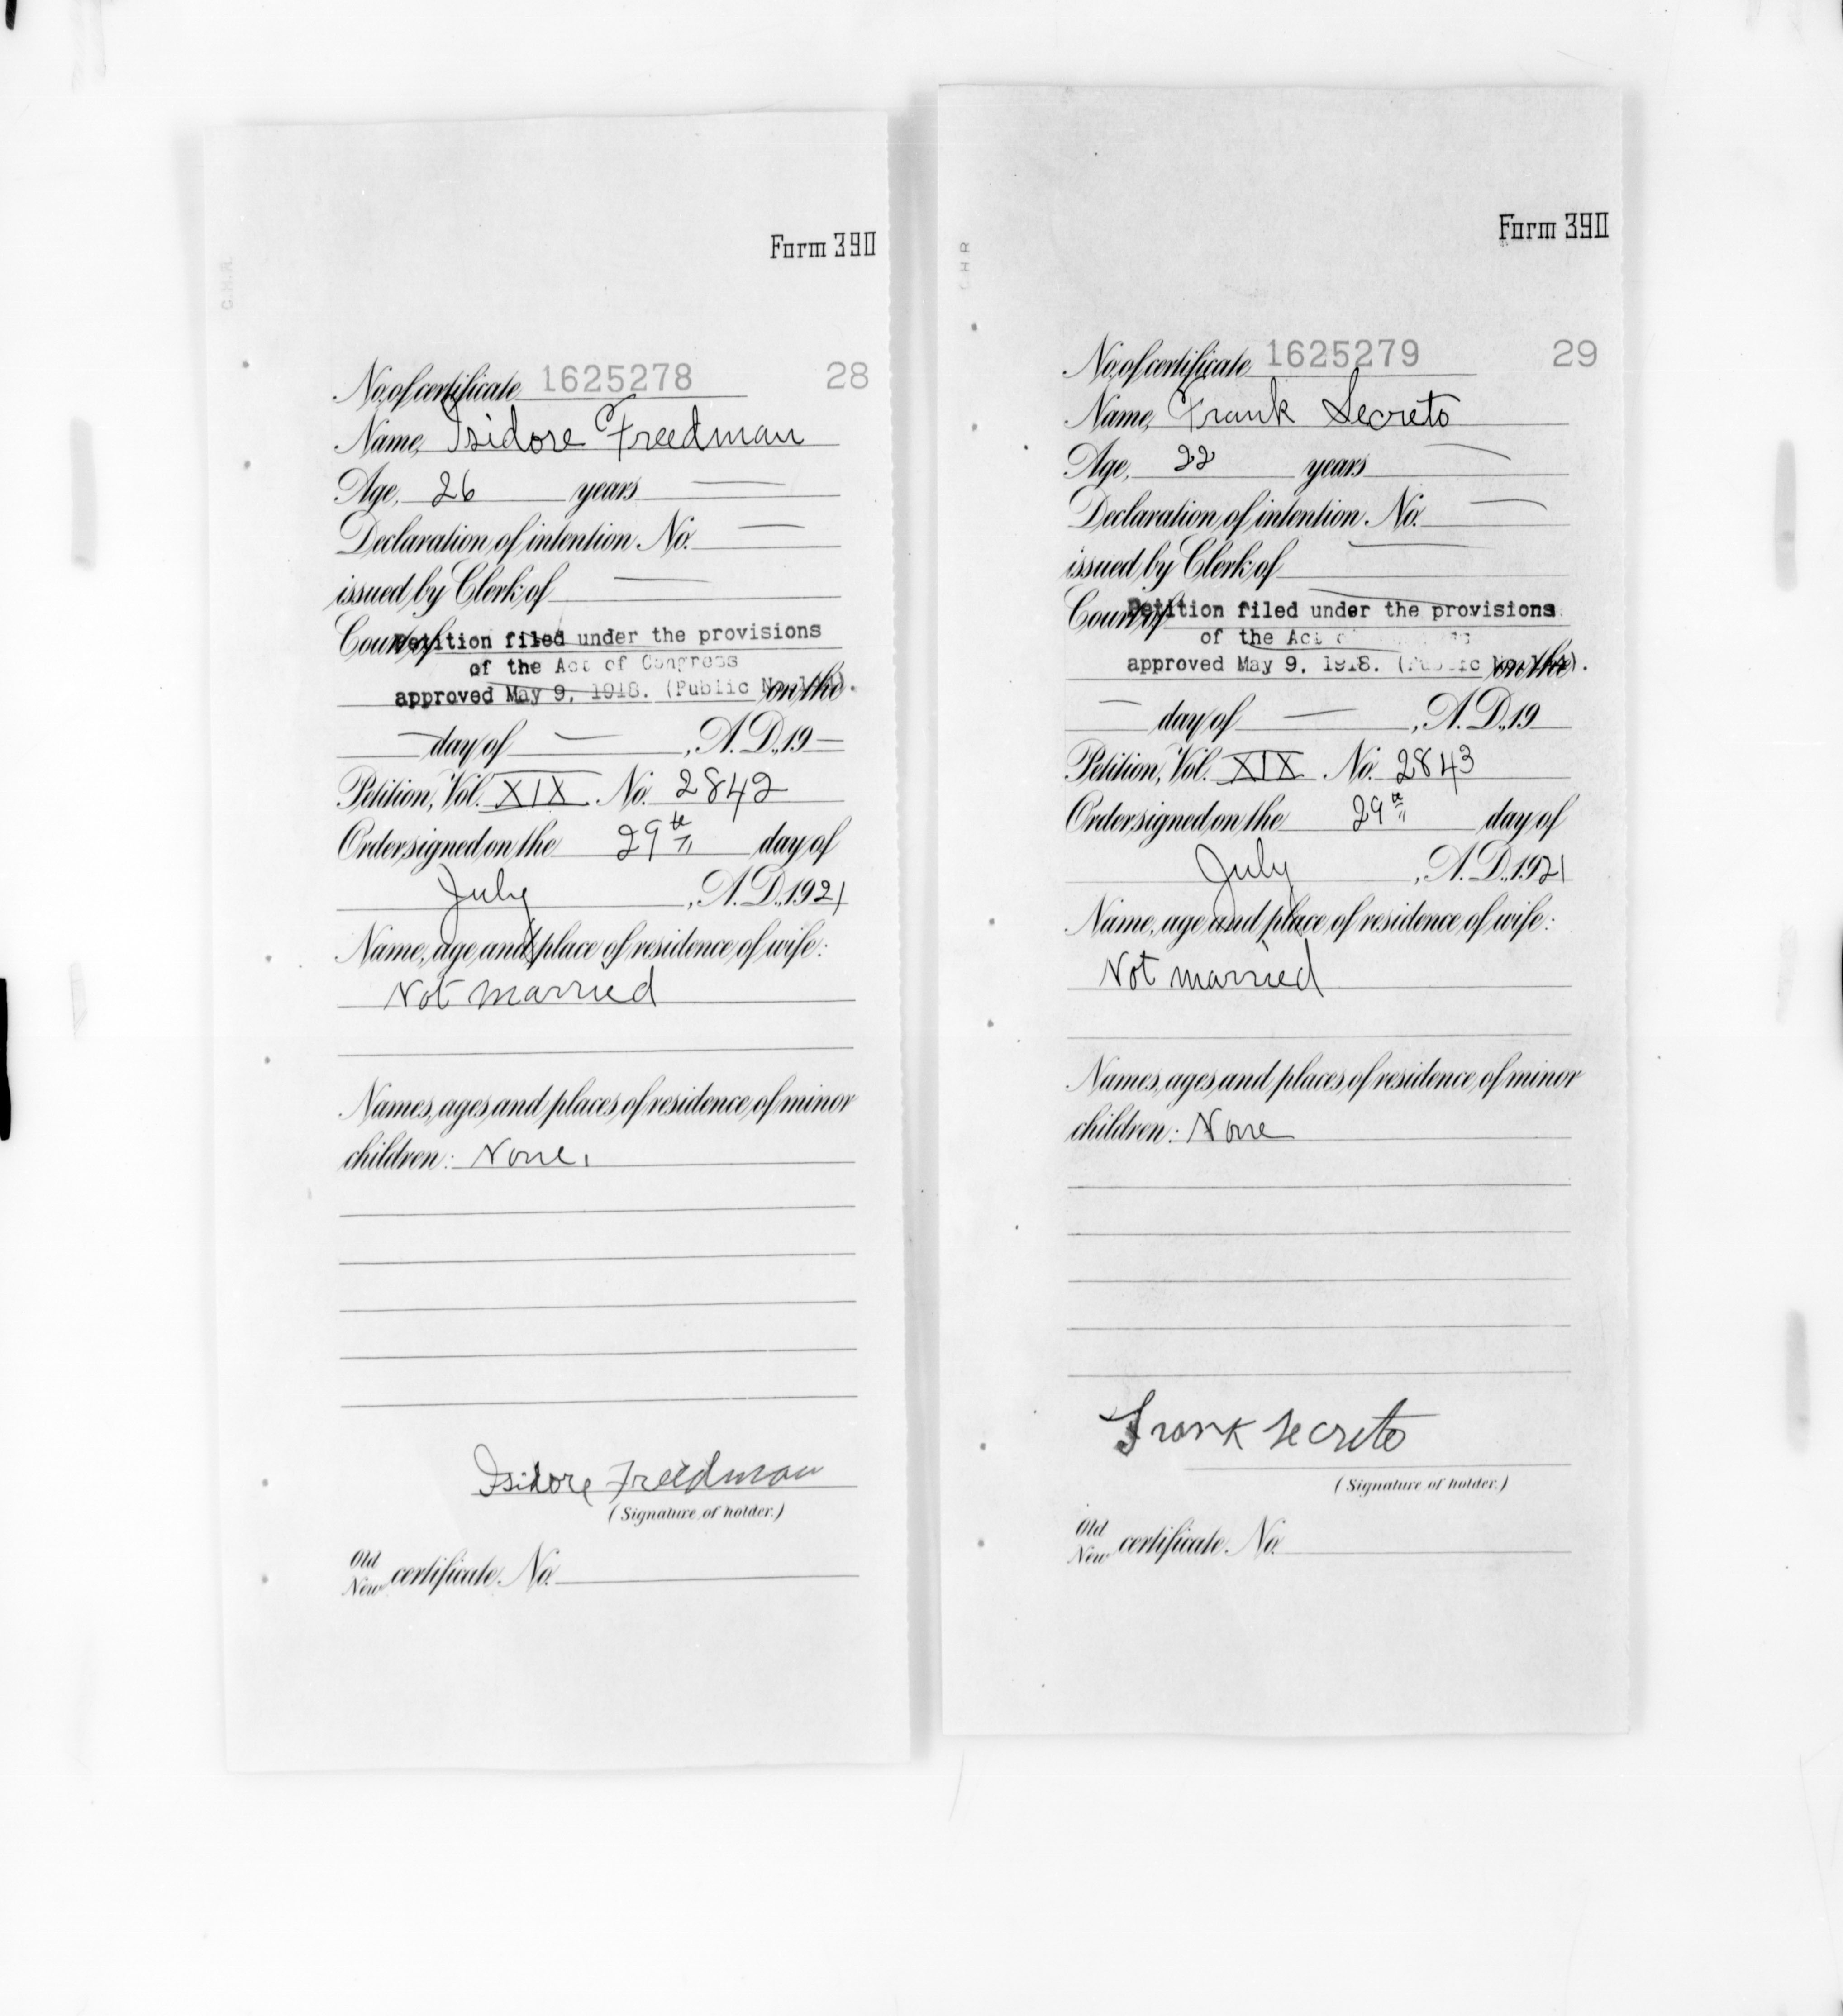 Form 390
C.H.R.
No. of certificate 1625278 28
Name, Isidore Freedman
Age, 26 years —
Declaration of intention No. —
issued by Clerk of —
Court of Petition filed under the provisions
of the Act of Congress
approved May 9, 1918. (Public No. ). on the
— day of — , A.D., 19 —
Petition, Vol. XIX No. 2842
Order signed on the 29th day of
July , A.D., 1921
Name, age and place of residence of wife:
Not married
Names, ages and places of residence of minor
children: None.
Isidore Freedman
(Signature of holder.)
Old
New certificate No.
Form 390
C H R
No. of certificate 1625279 29
Name, Frank Secreto
Age, 22 years —
Declaration of intention No. —
issued by Clerk of —
Court of Petition filed under the provisions
of the Act
approved May 9, 1918. (Public No. ). on the
— day of — , A.D., 19
Petition, Vol. XIX No. 2843
Order signed on the 29th day of
July , A.D., 1921
Name, age and place of residence of wife:
Not married
Names, ages and places of residence of minor
children: None
Frank Secreto
(Signature of holder.)
Old
New certificate No.